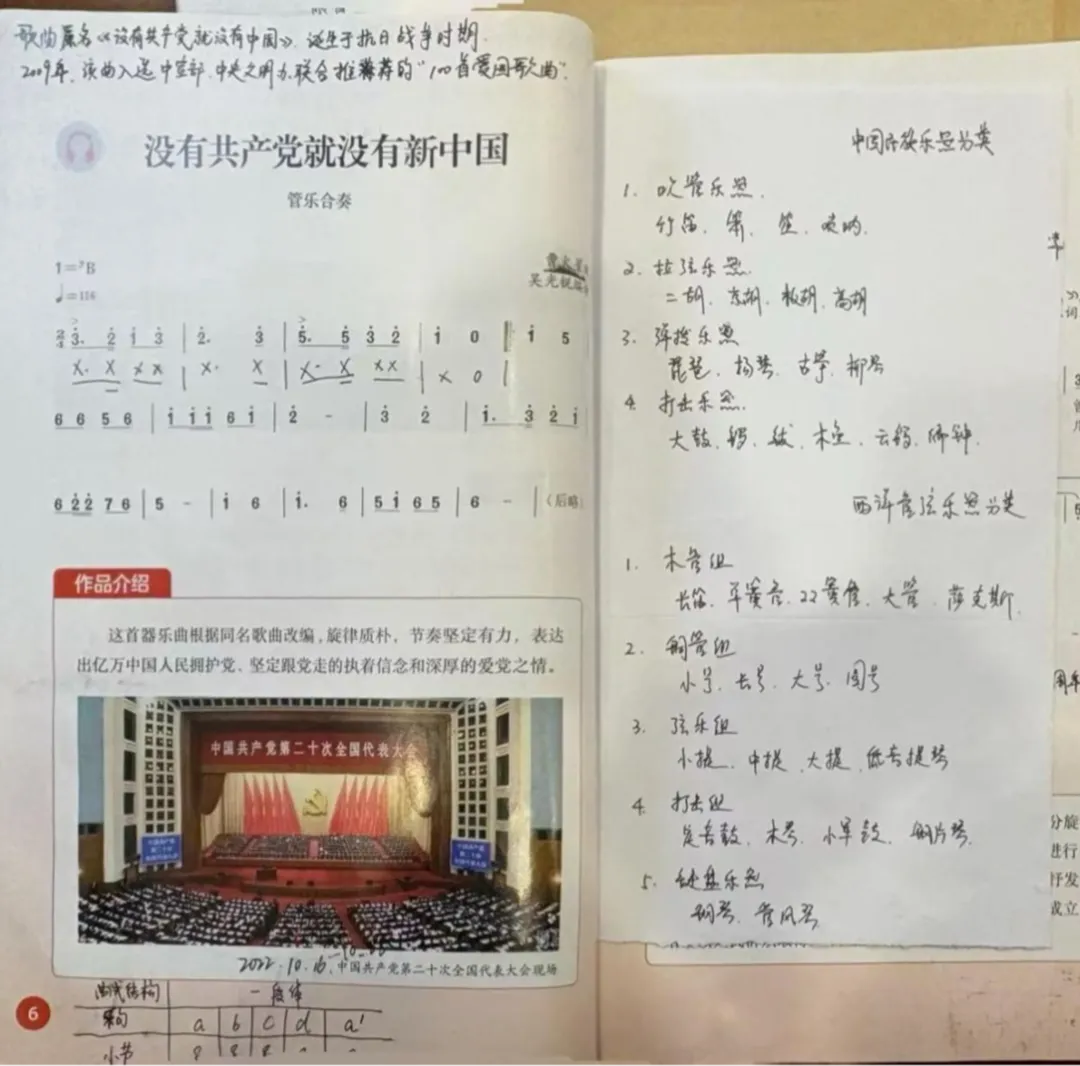 歌曲原名《没有共产党就没有中国》，诞生于抗日战争时期.
2009年，该曲入选中宣部.中央文明办联合推荐的“100首爱国歌曲”.
没有共产党就没有新中国
管乐合奏
1=♭B
♩=116
吴光锐
2/4 3. 2 1 3 | 2. 3 | 5. 5 3 2 | 1 0 | 1 5
X. X X X | X. X | X. X X X | X 0 |
6 6 5 6 | 1 1 1 6 1 | 2 - | 3 2 | 1. 3 2 1
6 2 2 7 6 | 5 - | 1 6 | 1. 6 | 5 1 6 5 | 6 - | （后略）
作品介绍
这首器乐曲根据同名歌曲改编，旋律质朴，节奏坚定有力，表达
出亿万中国人民拥护党、坚定跟党走的执着信念和深厚的爱党之情。
中国共产党第二十次全国代表大会
2022.10.16.中国共产党第二十次全国代表大会现场
曲式结构 一段体
乐句 a b c d a'
小节
6
中国民族乐器分类
1. 吹管乐器.
竹笛. 箫. 笙. 唢呐.
2. 拉弦乐器.
二胡. 京胡. 板胡. 高胡
3. 弹拨乐器
琵琶. 扬琴. 古筝. 柳琴
4. 打击乐器.
大鼓. 锣. 钹. 木鱼. 云锣. 编钟.
西洋管弦乐器分类
1. 木管组
长笛. 单簧管. 双簧管. 大管. 萨克斯.
2. 铜管组
小号. 长号. 大号. 圆号
3. 弦乐组
小提. 中提. 大提. 低音提琴
4. 打击组
定音鼓. 木琴. 小军鼓. 钢片琴.
5. 键盘乐器
钢琴. 管风琴
词
周年
分旋
进行
抒发
成立